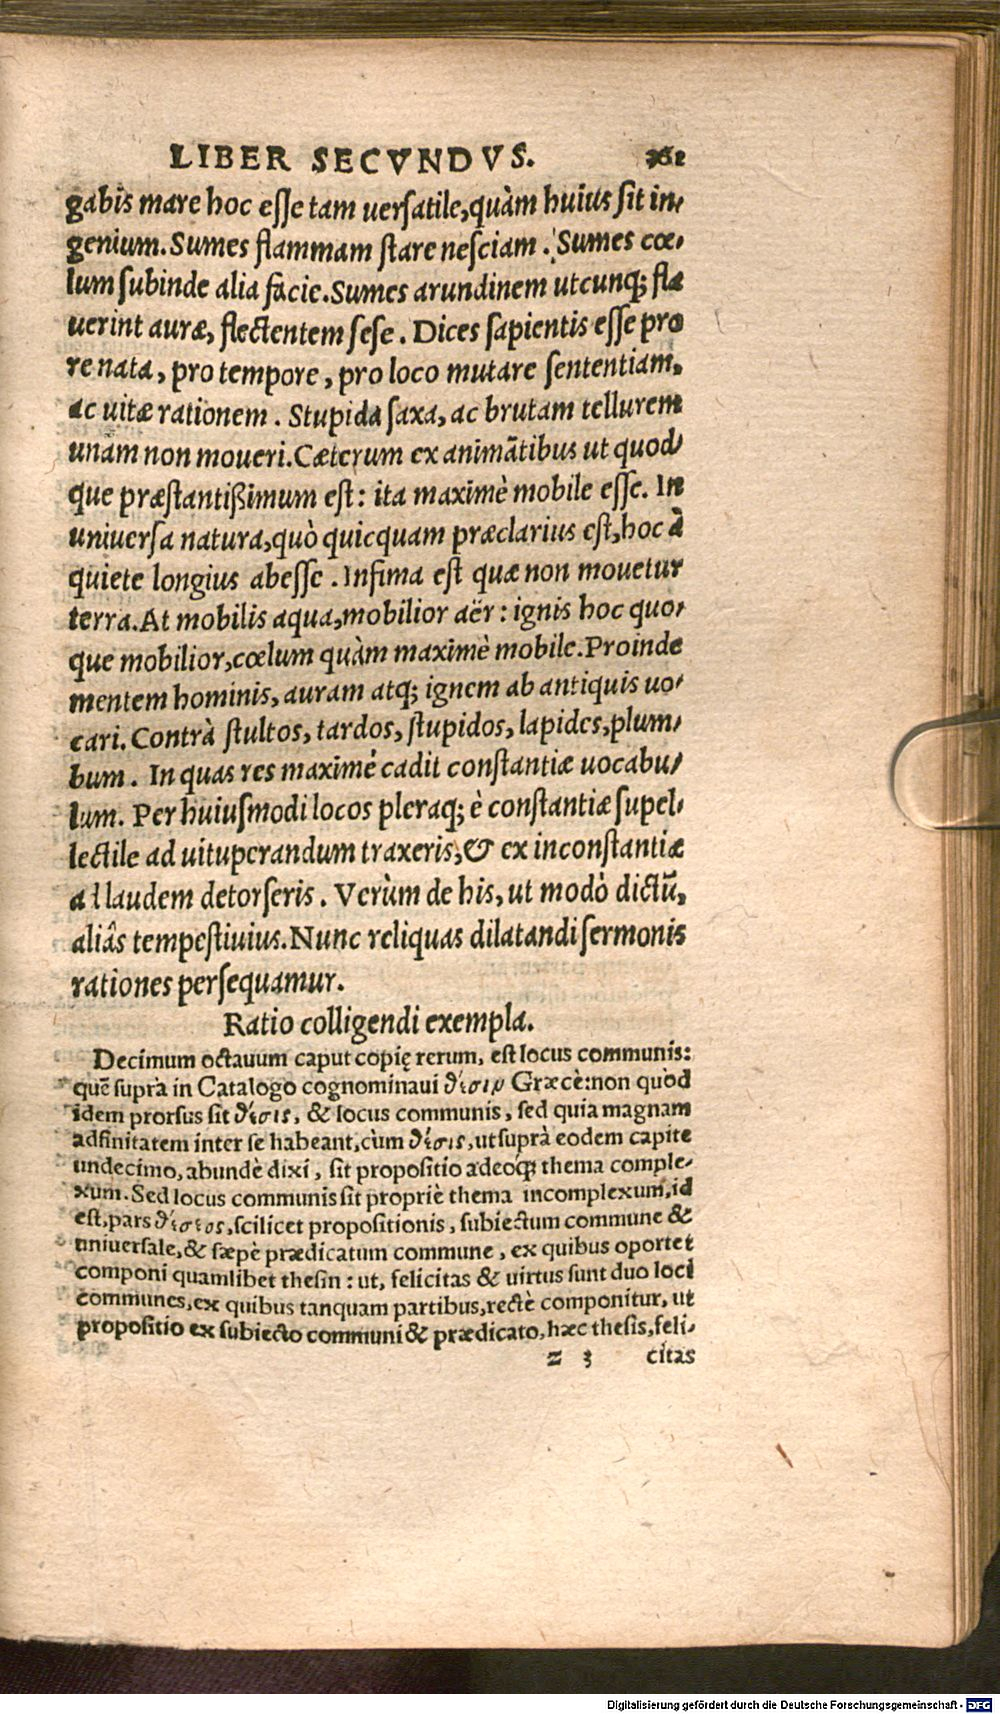 LIBER SECVNDVS.
gabis mare hoc esse tam uersatile, quàm huius sit in-
genium. Sumes flammam stare nesciam. Sumes cœ-
lum subinde alia facie. Sumes arundinem utcunq; fla
uerint auræ, flectentem sese. Dices sapientis esse pro
re nata, pro tempore, pro loco mutare sententiam,
ac uitæ rationem. Stupida saxa, ac brutam tellurem
unam non moueri. Cæterum ex animātibus ut quod-
que præstantißimum est: ita maximè mobile esse. In
uniuersa natura, quò quicquam præclarius est, hoc à
quiete longius abesse. Infima est quæ non mouetur
terra. At mobilis aqua, mobilior aër: ignis hoc quo-
que mobilior, cœlum quàm maximè mobile. Proinde
mentem hominis, auram atq; ignem ab antiquis uo-
cari. Contrà stultos, tardos, stupidos, lapides, plum-
bum. In quas res maximé cadit constantiæ uocabu-
lum. Per huiusmodi locos pleraq; è constantiæ supel-
lectile ad uituperandum traxeris, & ex inconstantiæ
ad laudem detorseris. Verùm de his, ut modò dictū,
aliâs tempestiuius. Nunc reliquas dilatandi sermonis
rationes persequamur.
Ratio colligendi exempla.
Decimum octauum caput copię rerum, est locus communis:
quē suprà in Catalogo cognominaui θέσιν Græcè: non quòd
idem prorsus sit θέσις, & locus communis, sed quia magnam
adfinitatem inter se habeant, cùm θέσις, ut suprà eodem capite
undecimo, abundè dixi, sit propositio adeoq; thema comple-
xum. Sed locus communis sit propriè thema incomplexum, id
est, pars θέσεος, scilicet propositionis, subiectum commune &
uniuersale, & sæpè prædicatum commune, ex quibus oportet
componi quamlibet thesin: ut, felicitas & uirtus sunt duo loci
communes, ex quibus tanquam partibus, rectè componitur, ut
propositio ex subiecto communi & prædicato, hæc thesis, feli-
z 3 citas
Digitalisierung gefördert durch die Deutsche Forschungsgemeinschaft - DFG